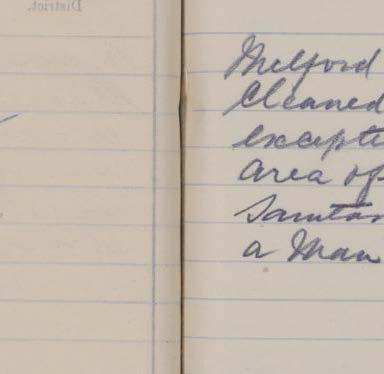 District.
Melford
Cleaned
excepti
area of
Sanitar
a Man